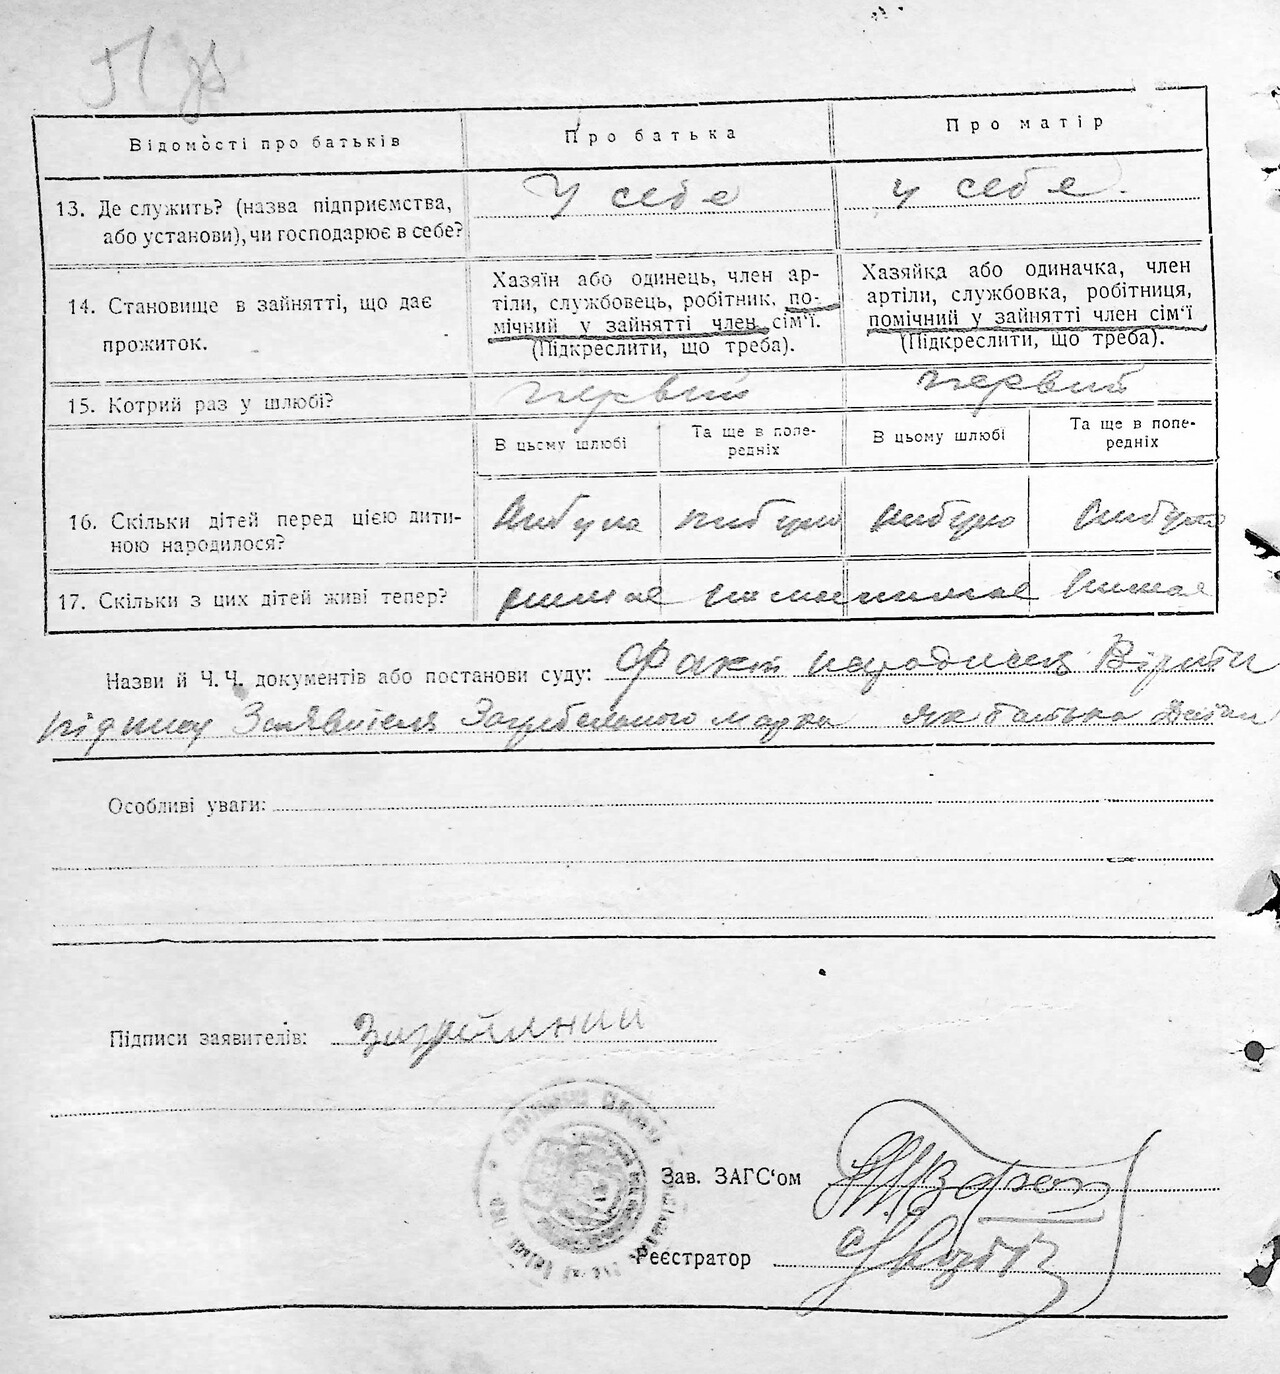 Відомості про батьків
Про батька
Про матір
13. Де служить? (назва підприємства,
або установи), чи господарює в себе?
У себе
у себе.
14. Становище в зайнятті, що дає
прожиток.
Хазяїн або одинець, член ар-
тіли, службовець, робітник, по-
мічний у зайнятті член сім'ї.
(Підкреслити, що треба).
Хазяйка або одиначка, член
артіли, службовка, робітниця,
помічний у зайнятті член сім'ї
(Підкреслити, що треба).
15. Котрий раз у шлюбі?
первий
первий
В цьому шлюбі
Та ще в попе-
редніх
В цьому шлюбі
Та ще в попе-
редніх
16. Скільки дітей перед цією дити-
ною народилося?
нибуло
нибуло
нибуло
нибуло
17. Скільки з цих дітей живі тепер?
нимае
нимае
нимае
нимае
Назви й Ч. Ч. документів або постанови суду: Факт
Заявителя Марка як батька
Особливі уваги:
Підписи заявителів:
Зав. ЗАГС'ом
Реєстратор